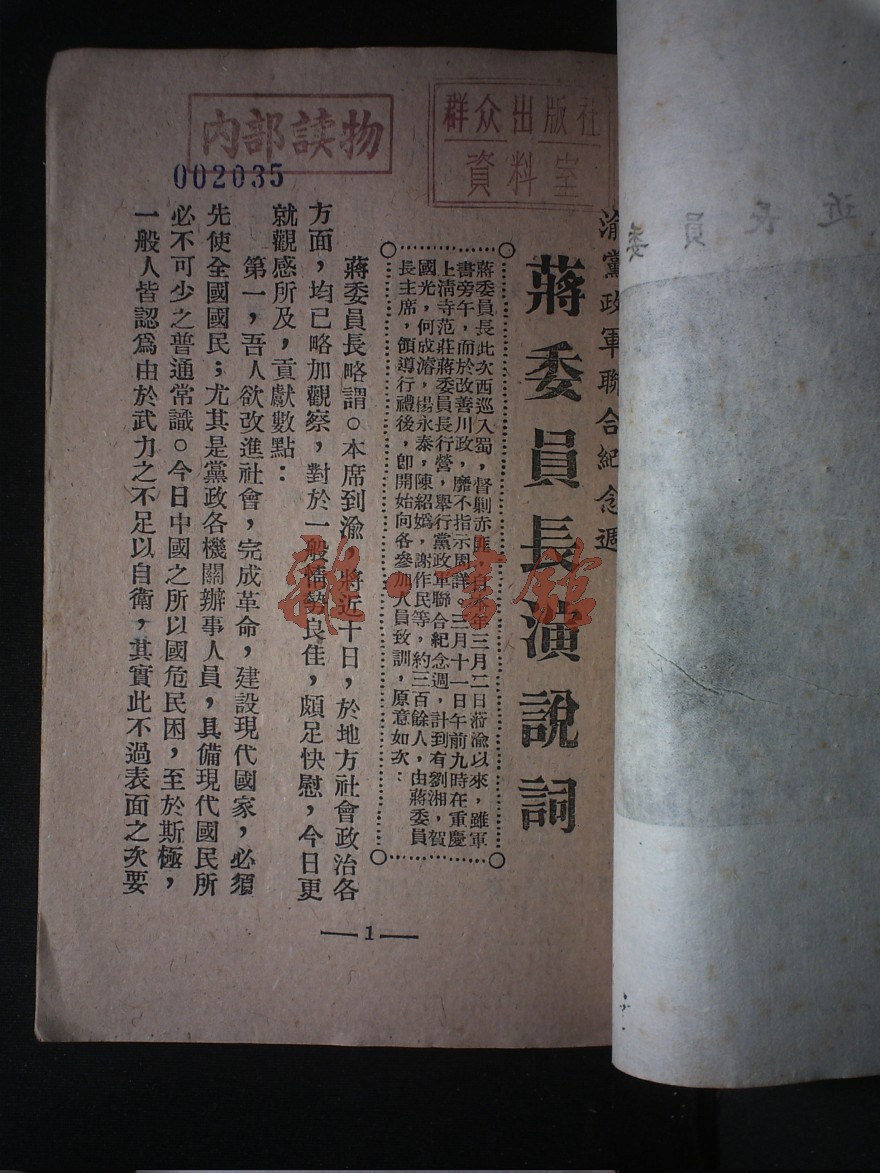 渝黨政軍聯合紀念週
蔣委員長演說詞
蔣委員長此次西巡入蜀,督剿赤匪,自本年三月二日蒞渝以來,雖軍
書旁午,而於改善川政,靡不指示周詳。三月十一日午前九時在重慶
上淸寺范莊蔣委員長行營,舉行黨政軍聯合紀念週,計到有劉湘,賀
國光,何成濬,楊永泰,陳紹嬀,謝作民等,約三百餘人,由蔣委員
長主席,領導行禮後,卽開始向各參加人員致訓,原意如次:
蔣委員長略謂。本席到渝,將近十日,於地方社會政治各
方面,均已略加觀察,對於一般情勢良佳,頗足快慰,今日更
就觀感所及,貢獻數點:
第一,吾人欲改進社會,完成革命,建設現代國家,必須
先使全國國民;尤其是黨政各機關辦事人員,具備現代國民所
必不可少之普通常識。今日中國之所以國危民困,至於斯極,
一般人皆認爲由於武力之不足以自衛,其實此不過表面之次要
— 1 —
内部读物
002035
群众出版社
資料室